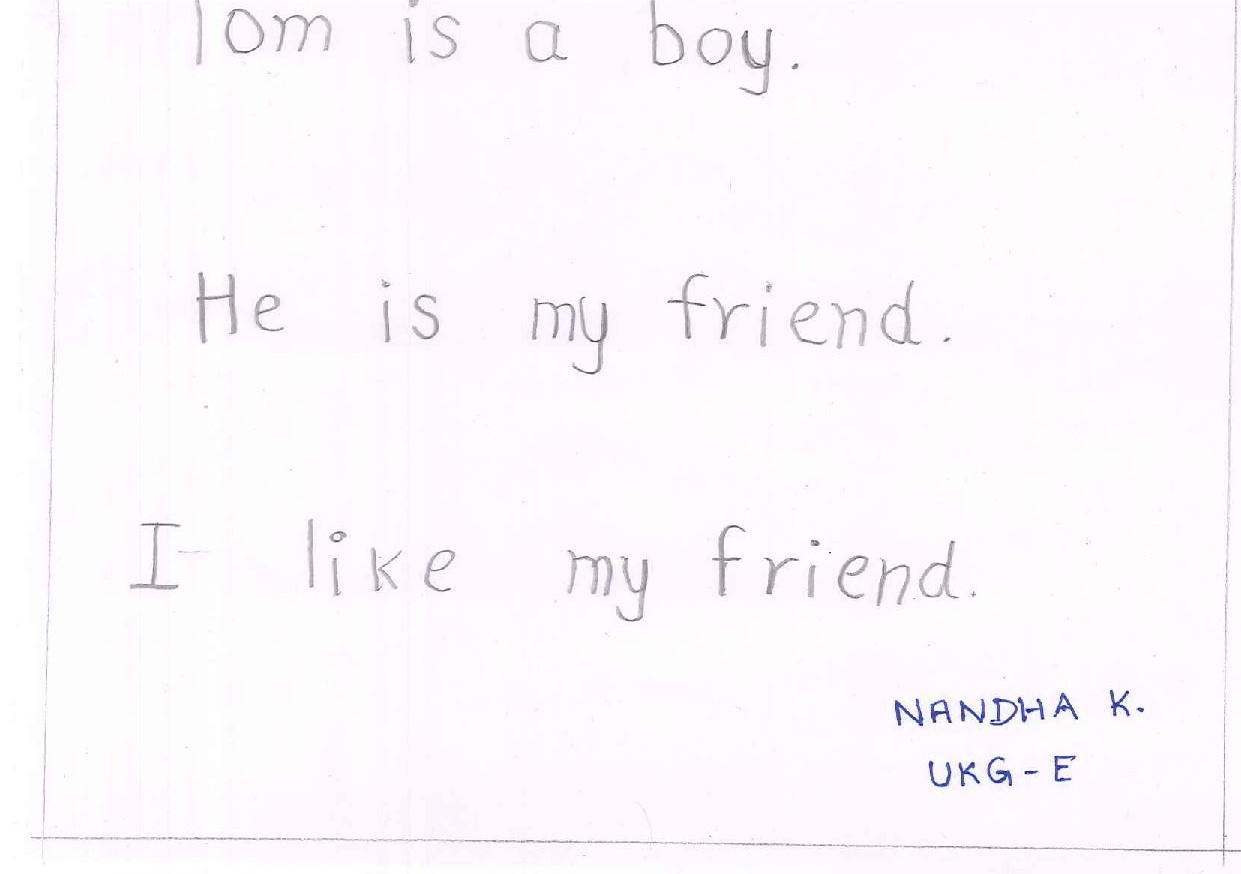 Tom is a boy.
He is my friend.
I like my friend.
NANDHA K.
UKG-E